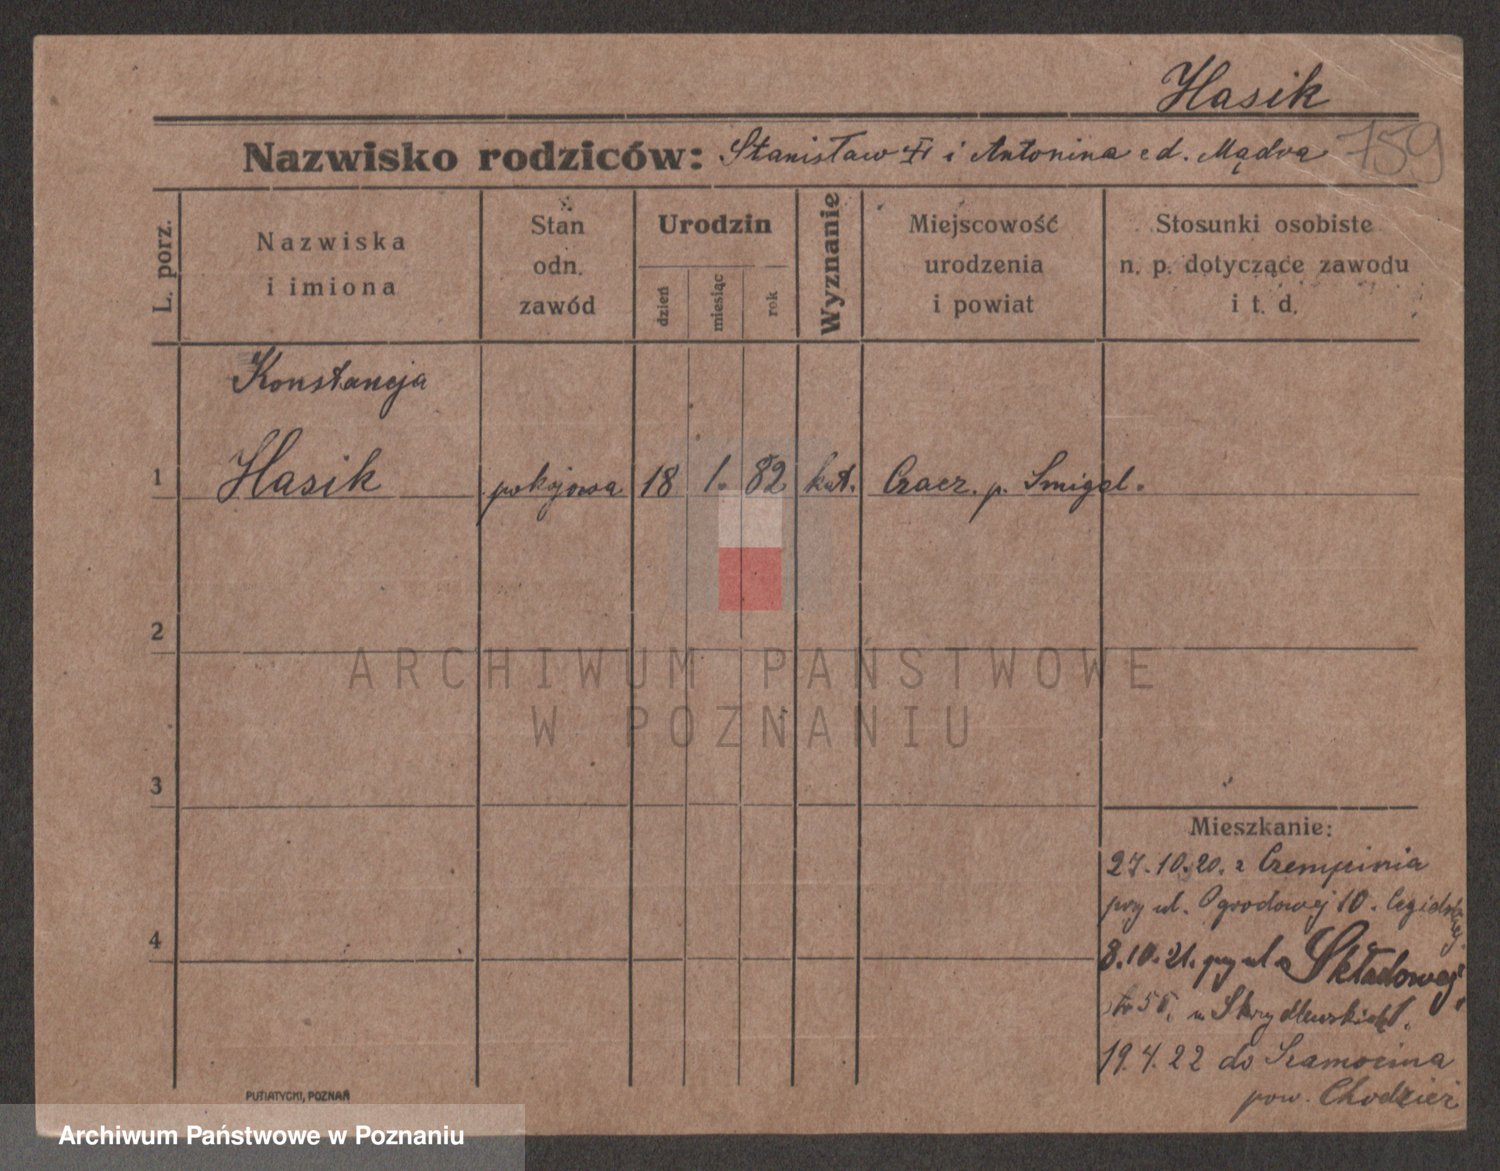 Hasik
Nazwisko rodziców: Stanisław i Antonina d. Mądra
759
L. porz.
Nazwiska
i imiona
Stan
odn.
zawód
Urodzin
dzień
miesiąc
rok
Wyznanie
Miejscowość
urodzenia
i powiat
Stosunki osobiste
n. p. dotyczące zawodu
i t. d.
Konstancja
1 Hasik pokojowa 18 1. 82 kat. Czacz. p. Smigel.
2
ARCHIWUM PAŃSTWOWE
W POZNANIU
3
Mieszkanie:
27.10.20. z Czempinia
przy ul. Ogrodowej 10.
4
8.10.21. przy ul. Składowej
u Skrydlewskich
19.4.22 do Szamocina
pow. Chodzież
PUTIATYCKI, POZNAŃ
Archiwum Państwowe w Poznaniu